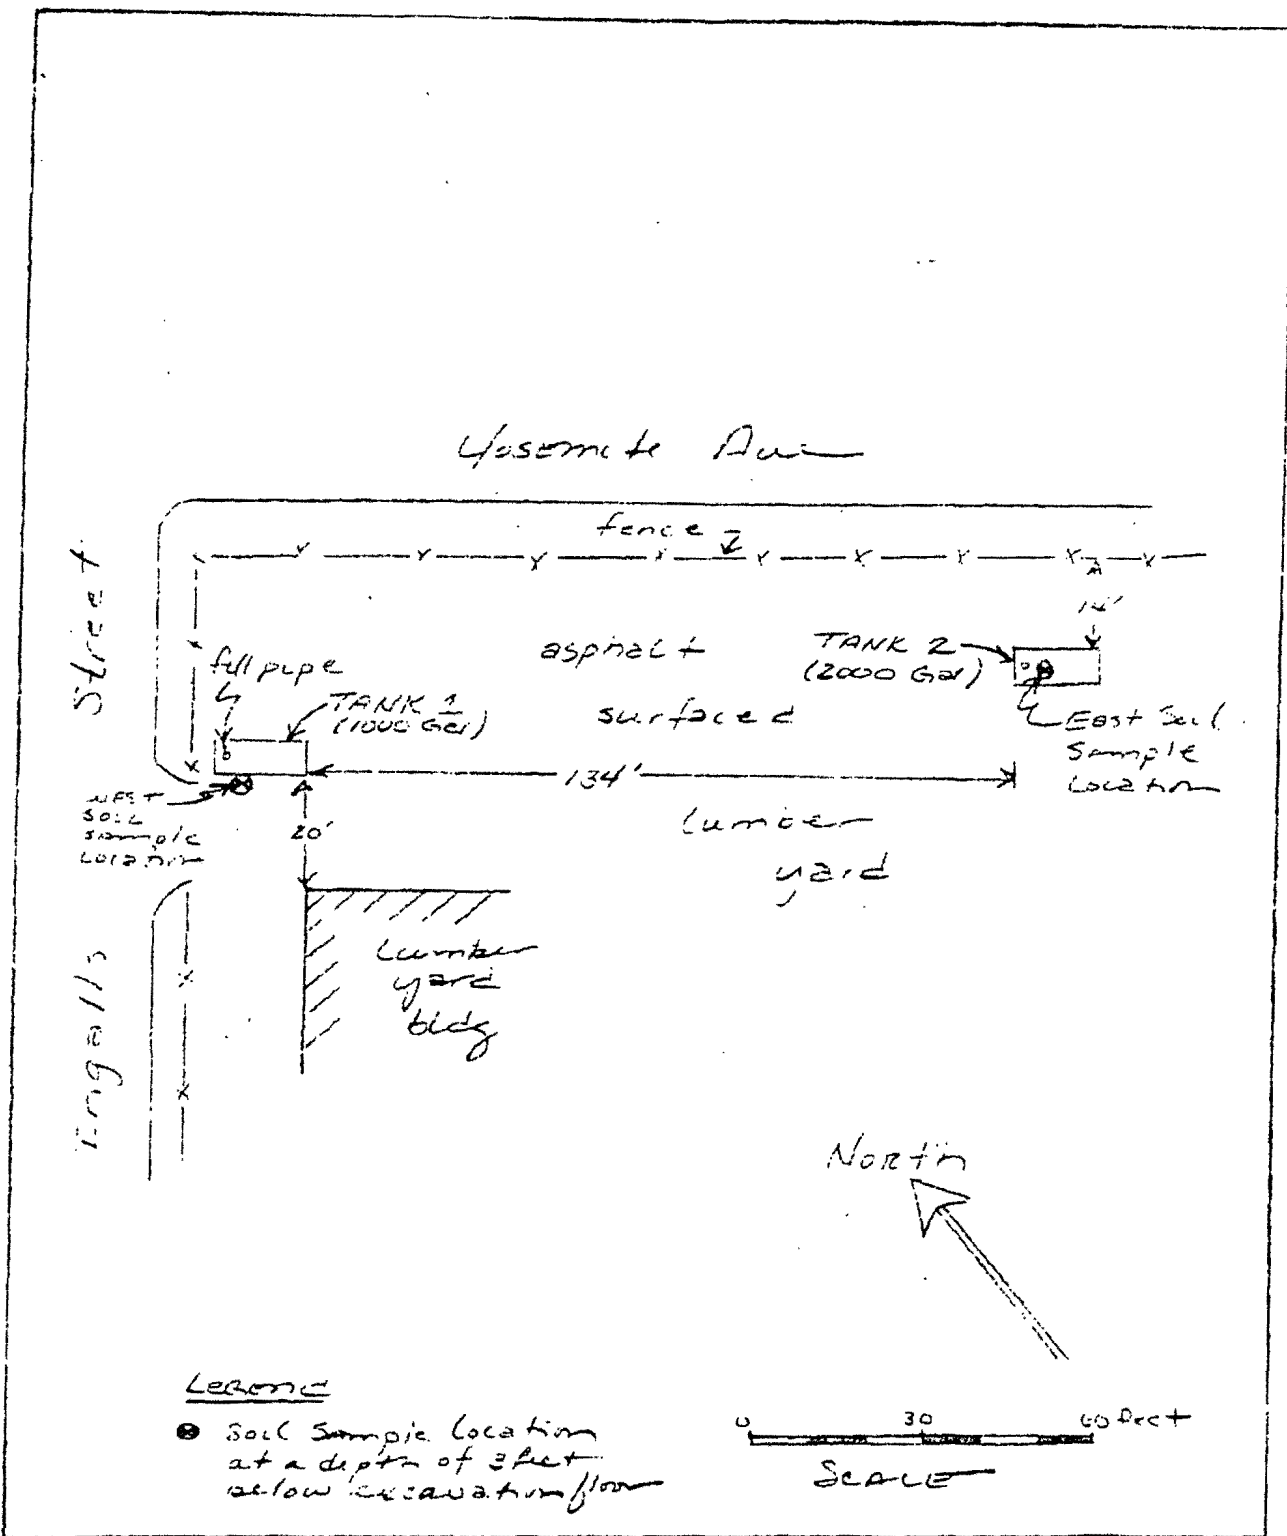 Yosemite Ave
fence
14'
Street
fill pipe
TANK 1
(1000 Gal)
asphalt
surfaced
TANK 2
(2000 Gal)
East Soil
Sample
Location
134'
WEST
SOIL
sample
Location
20'
lumber
yard
Lumber
yard
bldg
Ingalls
North
Legend
Soil Sample Location
at a depth of feet
below excavation floor
0 30 60 feet
SCALE